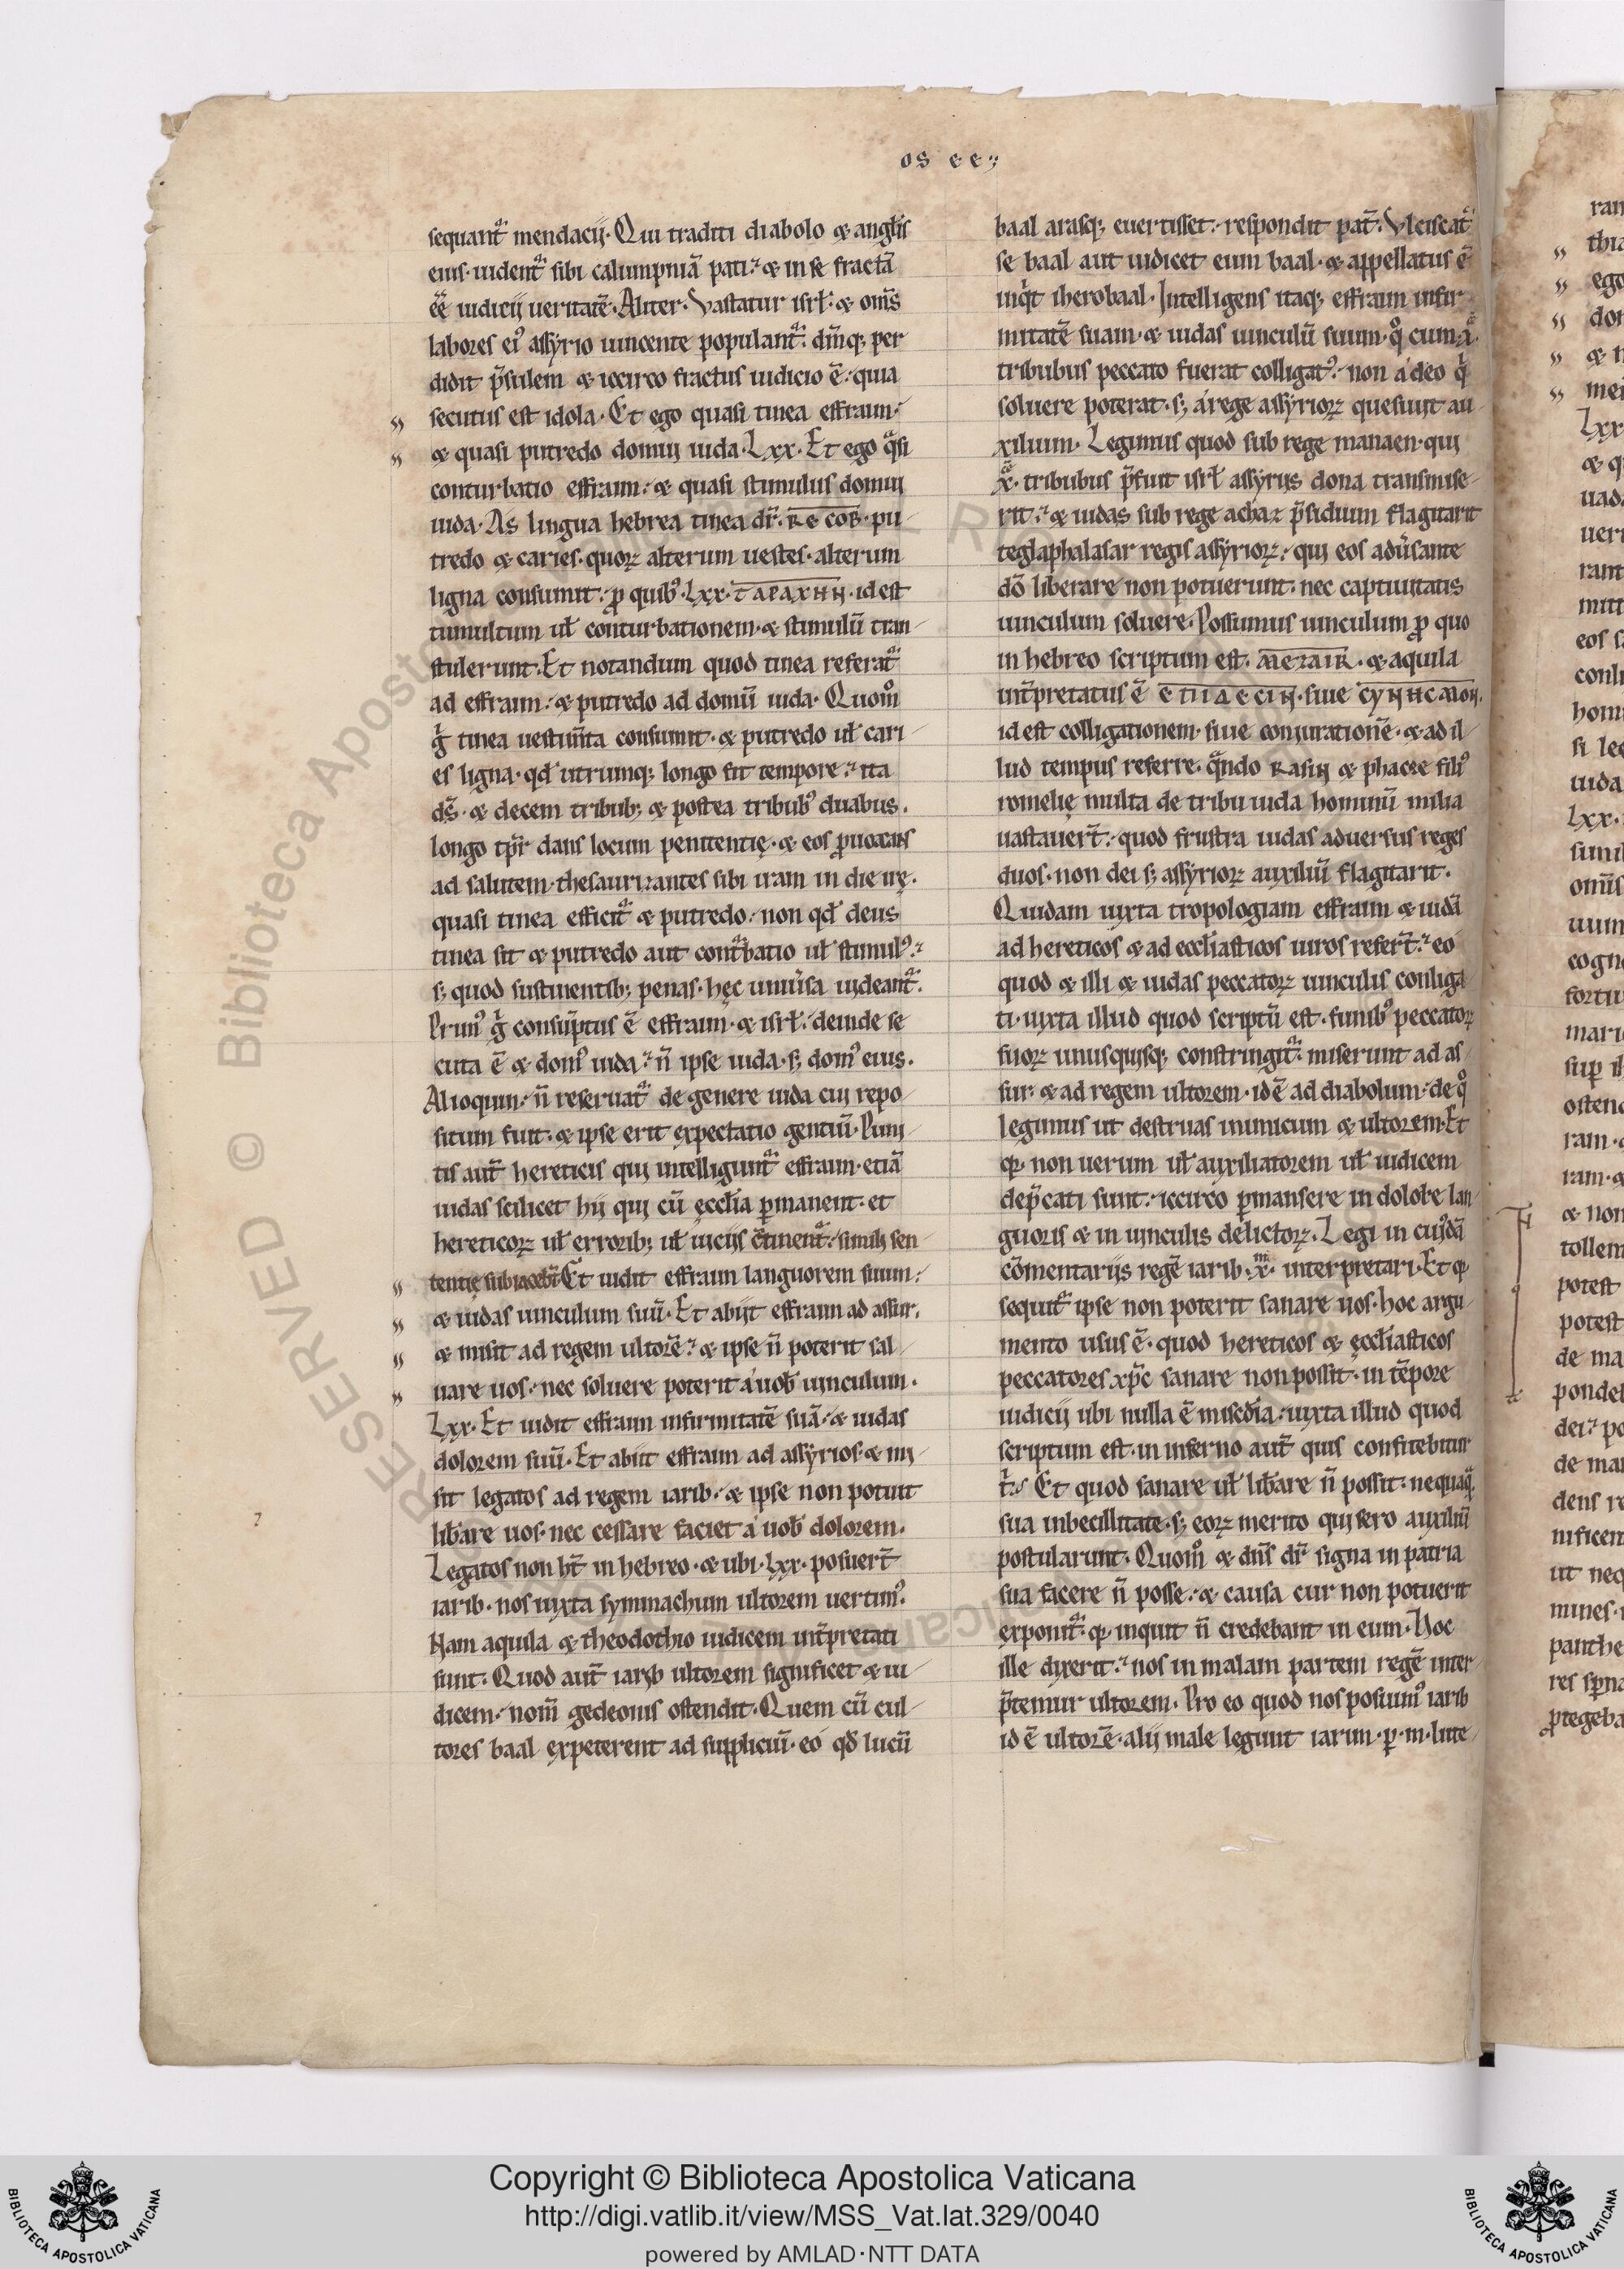 os ee;
sequant᷑ mendacij. Qui traditi diabolo & angl̃is
eius. uident᷑ sibi calumpniã pati. & in se fractã
ẽẽ iudicij ueritatẽ. Aliter. Vastatur isrł. & om̃s
labores ei᷒ assyrio uincente populant᷑. dm̃q; per
didit p̃sulem & iccirco fractus iudicio ẽ. quia
secutus est idola. Et ego quasi tinea effraim.
& quasi putredo domui iuda. Lxx. Et ego q̃si
conturbatio effraim. & quasi stimulus domui
iuda. As lingua hebrea tinea dr̃. RECOB. pu
tredo & caries. quoꝝ alterum uestes. alterum
ligna consumit. ꝓ quib᷒. Lxx. ταραχην. id est
tumultum uł conturbationem. & stimulũ tran
stulerunt. Et notandum quod tinea referat᷑
ad effraim. & putredo ad domũ iuda. Quom̊
g̊ tinea uestim̃ta consumit. & putredo uł cari
es ligna. qđ utrumq; longo fit tempore. ita
ds̃. & decem tribub; & postea tribub᷒ duabus.
longo tp̃r dans locum penitentię. & eos ꝓuocans
ad salutem. thesaurizantes sibi iram in die irę.
quasi tinea efficit᷑ & putredo. non qđ deus
tinea sit & putredo aut cont᷑batio uł stimul᷒.
s; quod sustinentib; penas. hęc uniũsa uideant᷑.
Prim᷒ g̊ consũptus ẽ effraim. & isrł. deinde se
cuta ẽ & dom᷒ iuda. ñ ipse iuda. s; dom᷒ eius.
Alioquin. ñ reseruat᷑ de genere iuda cui repo
situm fuit. & ipse erit expectatio gentiũ. Puni
tis aut̃ hereticis qui intelligunt᷑ effraim. etiã
iudas scilicet hij qui cũ ęccłia ꝑmanent. et
hereticoꝝ uł errorib; uł uicijs c̃tinent᷑. simili sen
tentię subiacebt̃. Et uidit effraim languorem suum.
& iudas uinculum suũ. Et abijt effraim ad assur.
& misit ad regem ultorẽ. & ipse ñ poterit sal
uare uos. nec soluere poterit á uob᷒ uinculum.
Lxx. Et uidit effraim infirmitatẽ suã. & iudas
dolorem suũ. Et abiit effraim ad assyrios. & mi
sit legatos ad regem iarib. & ipse non potuit
lib̃are uos. nec cessare faciet á uob᷒ dolorem.
Legatos non ht̃ in hebreo. & ubi. Lxx. posuert̃
iarib. nos iuxta symmachum ultorem uertim᷒.
Nam aquila & theodothio iudicem int̃pretati
sunt. Quod aut̃ iarib ultorem significet & iu
dicem. nom̃ gedeonis ostendit. Quem cũ cul
tores baal expeterent ad suppliciũ. eó qđ lucũ
baal arasq; euertisset. respondit pat̃. Vlciscat᷑
se baal aut iudicet eum baal. & appellatus ẽ
inq̃t iherobaal. Intelligens itaq; effraim infir
mitatẽ suam. & iudas uinculũ suum. q̊ cum x̃.
tribubus peccato fuerat colligat᷒. non á deo q̃
soluere poterat. s; á rege assyrioꝝ quesiuit au
xilium. Legimus quod sub rege manaen. qui
x̃. tribubus p̃fuit isrł assyrijs dona transmise
rit. & iudas sub rege achaz p̃sidium flagitarit
teglaphalasar regis assyrioꝝ. qui eos adũsante
dõ liberare non potuerunt. nec captiuitatis
uinculum soluere. Possumus uinculum ꝓ quo
in hebreo scriptum est. MEZAIR. & aquila
int̃pretatus ẽ ΕΠΙΔΕCΙΝ. siue CΥΝΗCΜΟΝ.
id est colligationem. siue coniurationẽ. & ad il
lud tempus referre. q̃ndo rasin & phacee fili᷒
romelię multa de tribu iuda hominũ milia
uastauert̃. quod frustra iudas aduersus reges
duos. non dei s; assyrioꝝ auxiliũ flagitarit.
Quidam iuxta tropologiam effraim & iudã
ad hereticos & ad eccłiasticos uiros refert̃. eó
quod & illi & iudas peccatoꝝ uinculis conliga
ti. iuxta illud quod scriptũ est. funib᷒ peccatoꝝ
suoꝝ unusquisq; constringit᷑. miserunt ad as
sur. & ad regem ultorem. id ẽ ad diabolum. de q̊
legimus ut destruas inimicum & ultorem. Et
qꝛ non uerum uł auxiliatorem uł iudicem
dep̃cati sunt. iccirco ꝑmansere in dolore lan
guoris & in uinculis delictoꝝ. Legi in cui᷒dã
cõmentarijs regẽ iarib. x̃. interpretari. Et qꝛ
sequit᷑ ipse non poterit sanare uos. hoc argu
mento usus ẽ. quod hereticos & ęccłiasticos
peccatores xp̃c sanare non possit. in tẽpore
iudicij ubi nulla ẽ misc̃dia. iuxta illud quod
scriptum est. in inferno aut̃ quis confitebitur
t̃. Et quod sanare uł lib̃are ñ possit. nequaq̃
sua inbecillitate. s; eoꝝ merito qui sero auxiliũ
postularunt. Quom̊ & dñs dr̃ signa in patria
sua facere ñ posse. & causa cur non potuerit
exponit᷑. qꝛ inquit ñ credebant in eum. Hoc
ille dixerit. nos in malam partem regẽ inter
p̃temur ultorem. Pro eo quod nos posuim᷒ iarib
id ẽ ultorẽ. alij male legunt iarim. ꝑ. m. litte
Copyright © Biblioteca Apostolica Vaticana
http://digi.vatlib.it/view/MSS_Vat.lat.329/0040
powered by AMLAD·NTT DATA
BIBLIOTECA APOSTOLICA VATICANA
BIBLIOTECA APOSTOLICA VATICANA